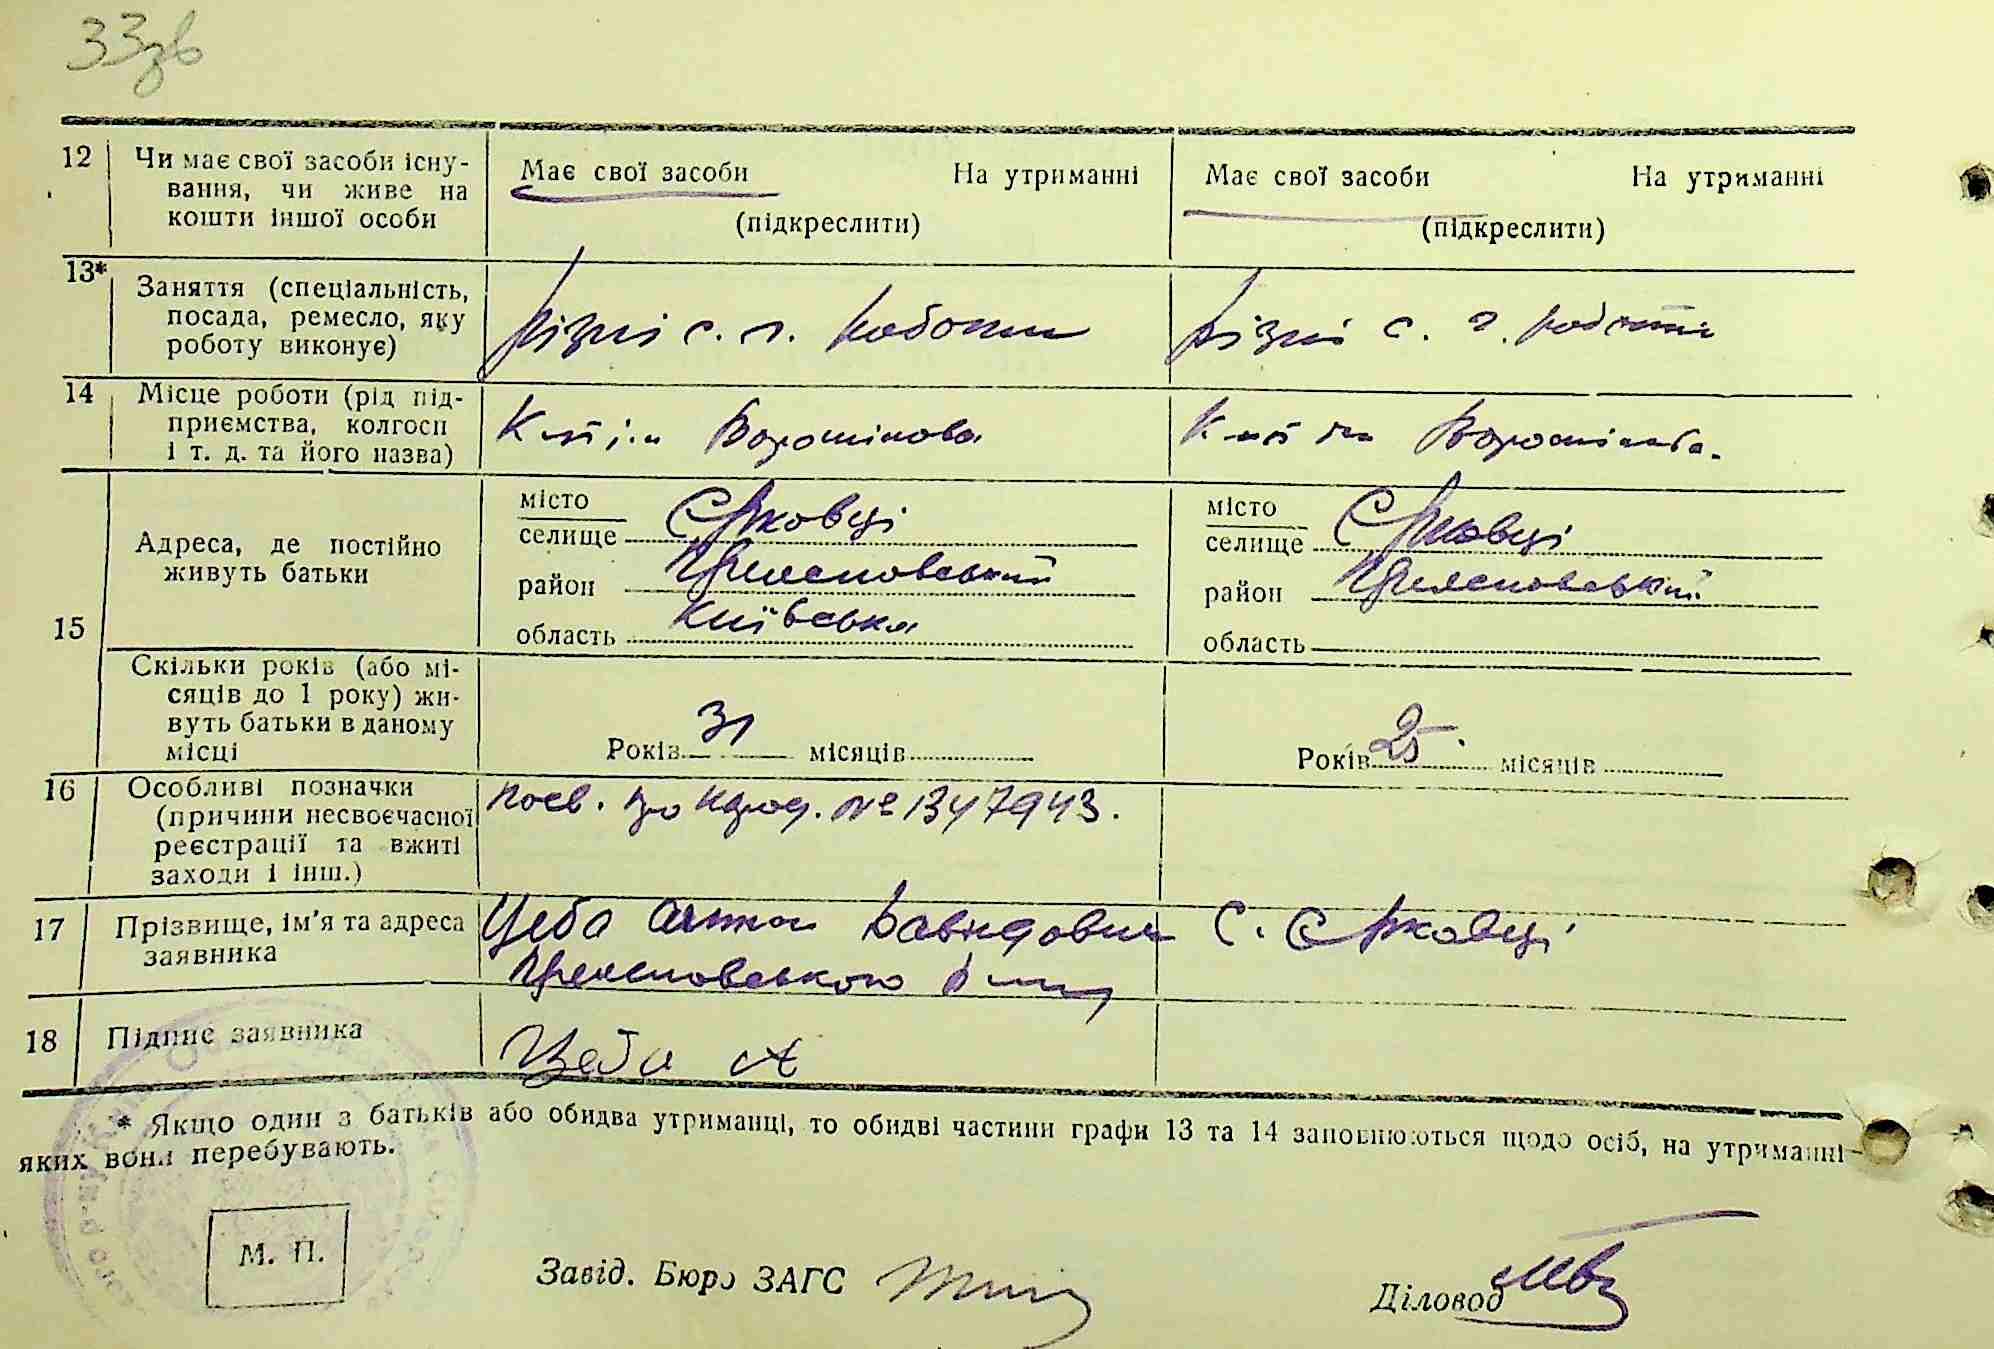 33зв
12 Чи має свої засоби існу-
вання, чи живе на
кошти іншої особи
Має свої засоби На утриманні
(підкреслити)
Має свої засоби На утриманні
(підкреслити)
13* Заняття (спеціальність,
посада, ремесло, яку
роботу виконує)
різні с. г. роботи
різні с. г. роботи
14 Місце роботи (рід під-
приємства, колгосп
і т. д. та його назва)
К-сп ім Ворошилова
К-сп ім Ворошилова.
15
Адреса, де постійно
живуть батьки
місто
селище Єрковці
район
область Київська
місто
селище Єрковці
район
область
Скільки років (або мі-
сяців до 1 року) жи-
вуть батьки в даному
місці
Років 31 місяців
Років 25 місяців
16 Особливі позначки
(причини несвоєчасної
реєстрації та вжиті
заходи і інш.)
посв. про народ. № 1347943.
17 Прізвище, ім'я та адреса
заявника
Цеба Давидович с. Єрковці
18 Підпис заявника
Цеба А
* Якщо один з батьків або обидва утриманці, то обидві частини графи 13 та 14 заповнюються щодо осіб, на утриманні
яких вони перебувають.
М. П.
Завід. Бюро ЗАГС
Діловод